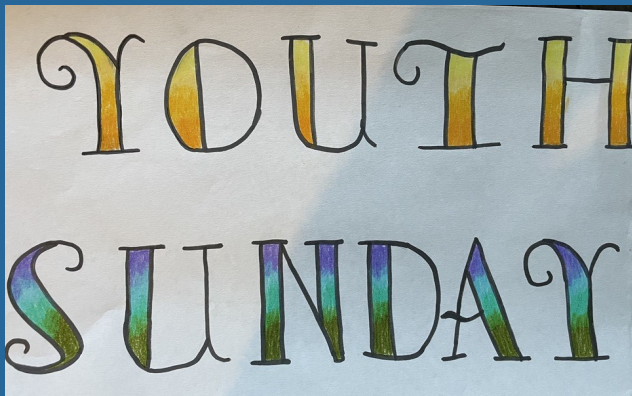 YOUTH
SUNDAY